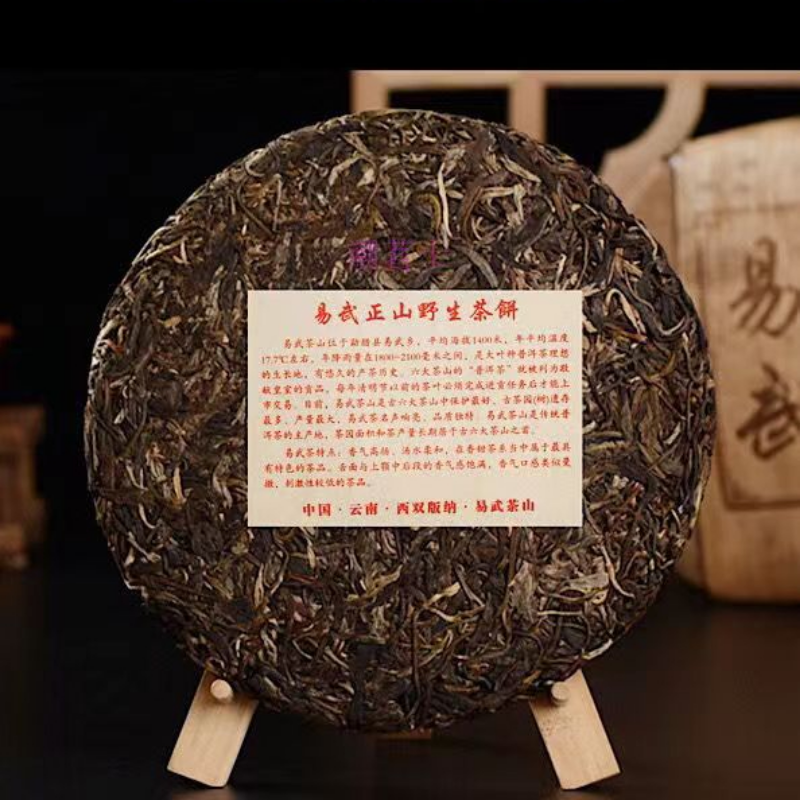 易武正山野生茶餅
易武茶山位于勐腊县易武乡，平均海拔1400米，年平均温度
17.7℃左右，年降雨量在1800-2100毫米之间，是大叶种普洱茶理想
的生长地，有悠久的产茶历史。六大茶山的“普洱茶”就被列为敬
献皇室的贡品，每年清明节以前的茶叶必须完成进贡任务后才能上
市交易。目前，易武茶山是古六大茶山中保护最好、古茶园(树)遗存
最多、产量最大，易武茶名声响亮、品质独特。易武茶山是传统普
洱茶的主产地，茶园面积和茶产量长期居于古六大茶山之首。
易武茶特点：香气高扬、汤水柔和，在香甜茶系当中属于最具
有特色的茶品。舌面与上颚中后段的香气感饱满，香气口感类似蜜
，刺激性较低的茶品。
中国·云南·西双版纳·易武茶山
易武